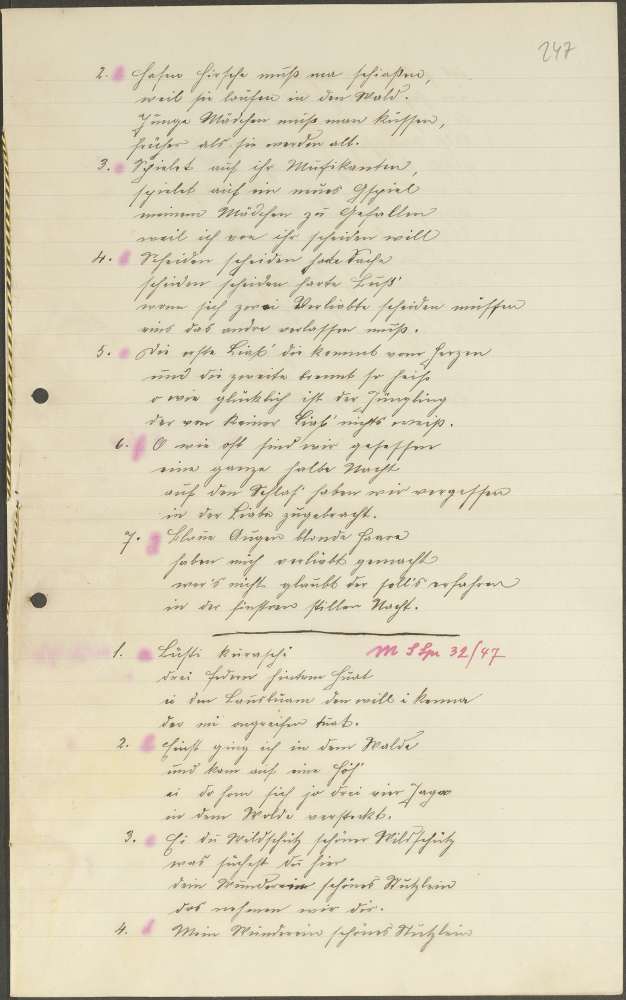 247
2. Hasen Hirsche muß ma schiaßen,
weil sie laufen in den Wald.
Junge Mädchen muß man küssen,
früher als sie werden alt.
3. Spielet auf ihr Musikanten,
spielet auf ein neues Gspiel
meinem Mädchen zu Gefallen
weil ich von ihr scheiden will
4. Scheiden scheiden harte Sache
scheiden scheiden harte Buß'
wenn sich zwei Verliebte scheiden müssen
eins das andre verlassen muß.
5. Die erste Liab' die kommt vom Herzen
und die zweite brennt so heiß
o wie glücklich ist der Jüngling
der von keiner Liab' nichts weiß.
6. O wie oft sind wir gesessen
eine ganze halbe Nacht
auf den Schlaf haben wir vergessen
in der Liebe zugebracht.
7. Blaue Augen blonde Haare
haben mich verliebt gemacht
wer's nicht glaubt der soll's erfahren
in der finstren stillen Nacht.
1. Lusti
M S Spr 32/47
drei Federn hintern Huat
den will i kenna
der mi angreifen tuat.
2. Einst ging ich in dem Walde
und kam auf eine Höh'
ei do hom sich jo drei vier Jager
in dem Walde versteckt.
3. Ei du Wildschütz schöner Wildschütz
was suchest du hier
dein Wunderein schönes Stutzlein
das nehmen wir dir.
4. Mein Wunderein schönes Stutzlein